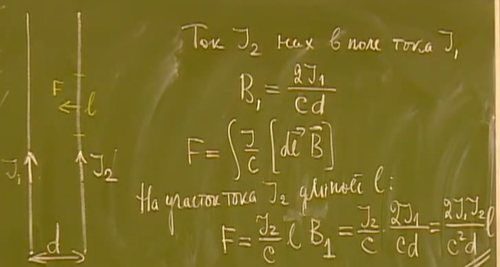 Ток J₂ нах в поле тока J₁
B₁ = 2J₁/cd
F = ∫ J/c [dl⃗ B⃗]
На участок тока J₂ длиной l:
F = J₂/c l B₁ = J₂/c · 2J₁/cd = 2J₁J₂/c²d l
F
l
J₁
J₂
d